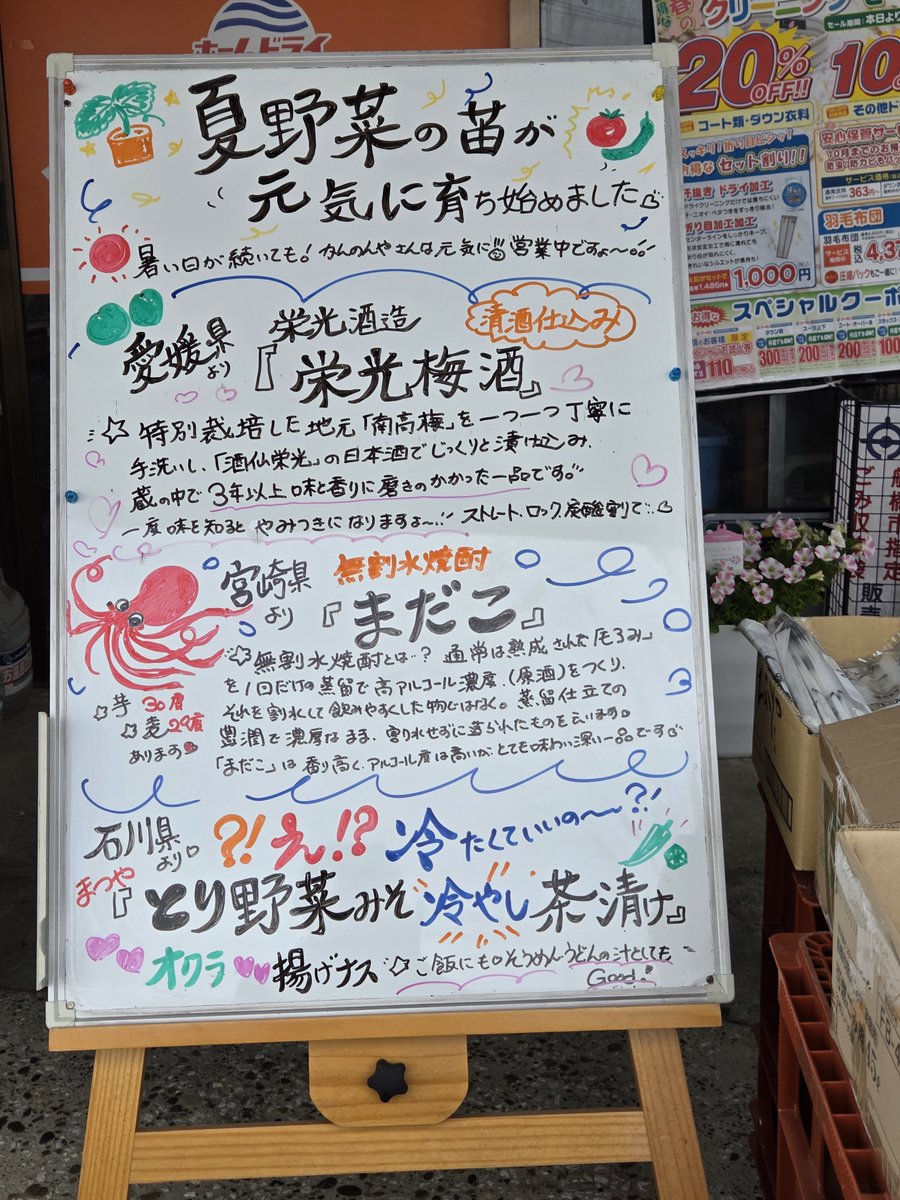 ホームドライ
夏野菜の苗が
元気に育ち始めました
暑い日が続いても！かんのんやさんは元気に営業中ですょ〜!!
愛媛県より
栄光酒造
清酒仕込み
『栄光梅酒』
特別栽培した地元「南高梅」を一つ一つ丁寧に
手洗いし、「酒仙栄光」の日本酒でじっくりと漬け込み、
蔵の中で3年以上味と香りに磨きのかかった一品です。
一度味を知るとやみつきになりますょ〜.. ストレート、ロック、炭酸割で..
宮崎県より
無割水焼酎
『まだこ』
無割水焼酎とは？通常は熟成された「もろみ」
を1回だけの蒸留で高アルコール濃度、(原酒)をつくり、
それを割水して飲みやすくした物ではなく。蒸留仕立ての
豊潤で濃厚なまま、割水せずに造られたものを言います。
「まだこ」は香り高く、アルコール度は高いが、とても味わい深い一品です
芋30度
麦29度
あります
石川県より
?! え!? 冷たくていいの〜〜?!
まつや
『とり野菜みそ冷やし茶漬け』
オクラ 揚げナス ご飯にも。そうめん、うどんの汁としても
Good!
クリーニング
セール期間：本日より
20%OFF!!
コート類・ダウン衣料
その他
お得なセット割り!!
汗抜きドライ加工
折り目加工
1,000円
安心保管サー
10月までのお預
サービス価格
363円
羽毛布団
4,37
圧縮パックもご一緒に!
スペシャルクーポ
300
200
200
100
110円
船橋市指定
ごみ収集袋
販売